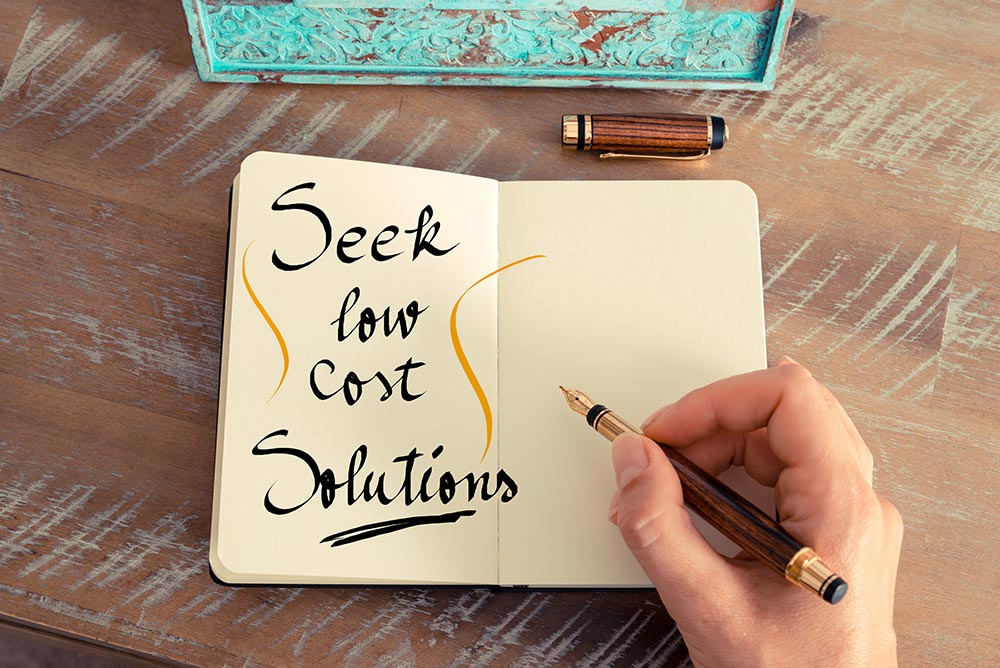 Seek
low
cost
Solutions